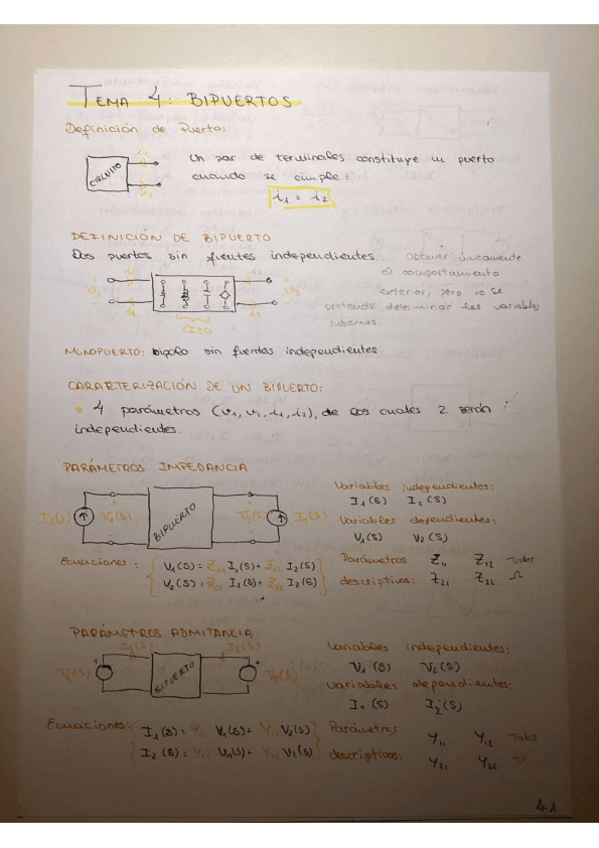 TEMA 4: BIPUERTOS
Definición de Puerto:
CIRCUITO
i1
i2
Un par de terminales constituye un puerto
cuando se cumple:
i1 = i2
DEFINICIÓN DE BIPUERTO
Dos puertos sin fuentes independientes. Obtener únicamente
el comportamiento
exterior, pero no se
pretende determinar las variables
internas
MONOPUERTO: bipolo sin fuentes independientes
CARARTERIZACIÓN DE UN BIPUERTO:
4 parámetros (v1, v2, i1, i2), de los cuales 2 serán
independientes.
PARÁMETROS IMPEDANCIA
I1(s) V1(s) BIPUERTO V2(s) I2(s)
Variables independientes:
I1(s) I2(s)
Variables dependientes:
V1(s) V2(s)
Ecuaciones: V1(s) = Z11 I1(s) + Z12 I2(s)
V2(s) = Z21 I1(s) + Z22 I2(s)
Parámetros Z11 Z12 Todos
descriptivos: Z21 Z22 Ω
PARÁMETROS ADMITANCIA
I1(s) I2(s)
V1(s) BIPUERTO V2(s)
Variables independientes:
V1(s) V2(s)
variables dependientes:
I1(s) I2(s)
Ecuaciones: I1(s) = Y11 V1(s) + Y12 V2(s)
I2(s) = Y21 V1(s) + Y22 V2(s)
Parámetros Y11 Y12 Todos
descriptivos: Y21 Y22 ℧
4.1